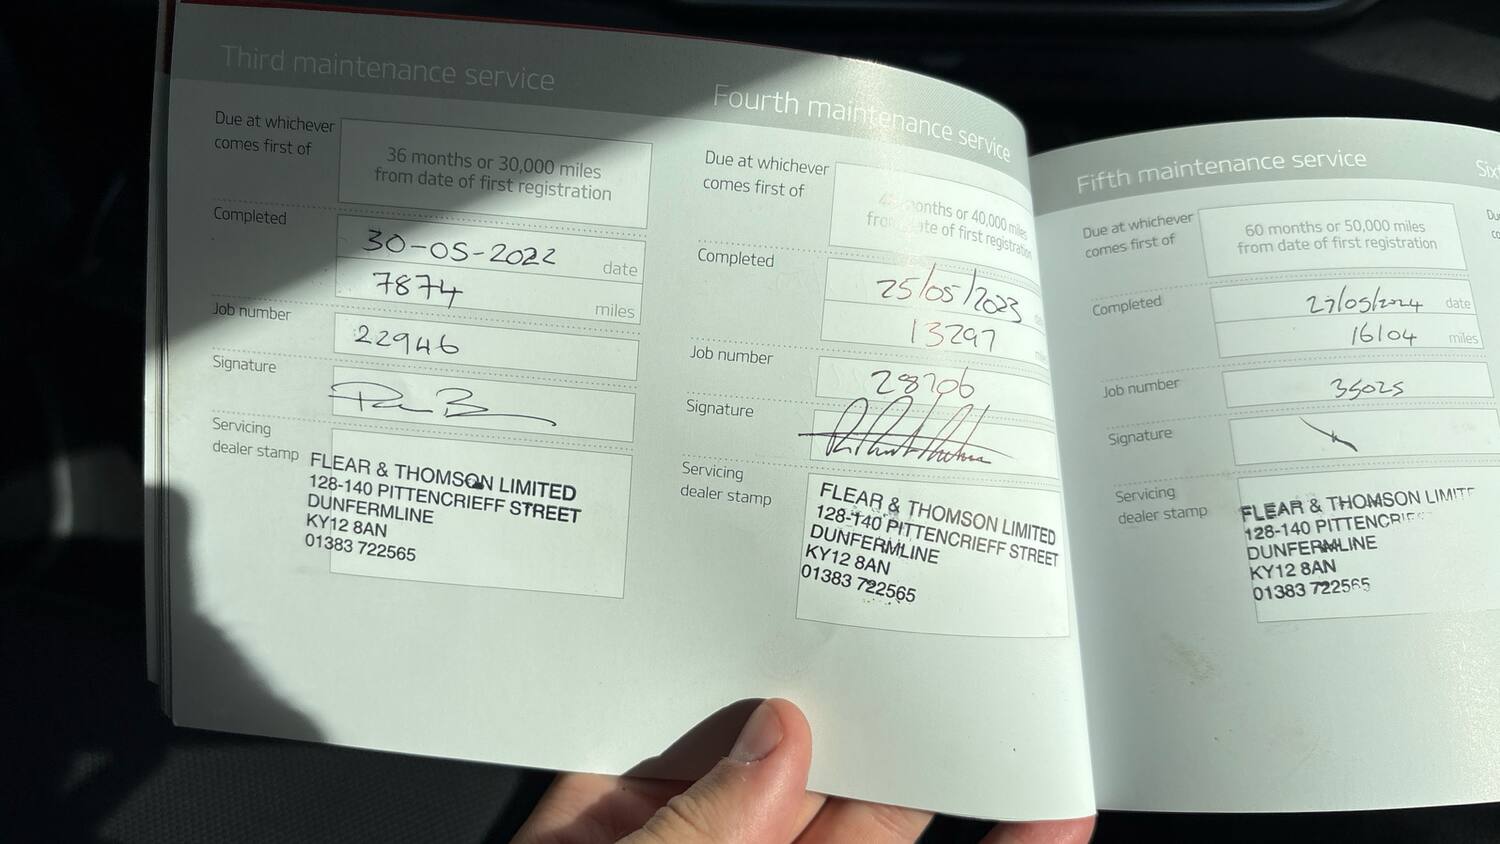 Third maintenance service
Due at whichever
comes first of
36 months or 30,000 miles
from date of first registration
Completed
30-05-2022
date
7874
miles
Job number
22946
Signature
Servicing
dealer stamp
FLEAR & THOMSON LIMITED
128-140 PITTENCRIEFF STREET
DUNFERMLINE
KY12 8AN
01383 722565
Fourth maintenance service
Due at whichever
comes first of
months or 40,000 miles
from date of first registration
Completed
25/05/2023
13297
Job number
28706
Signature
Servicing
dealer stamp
FLEAR & THOMSON LIMITED
128-140 PITTENCRIEFF STREET
DUNFERMLINE
KY12 8AN
01383 722565
Fifth maintenance service
Due at whichever
comes first of
60 months or 50,000 miles
from date of first registration
Completed
27/05/2024
date
16104
miles
Job number
35025
Signature
Servicing
dealer stamp
FLEAR & THOMSON LIMITE
128-140 PITTENCRIE
DUNFERMLINE
KY12 8AN
01383 722565